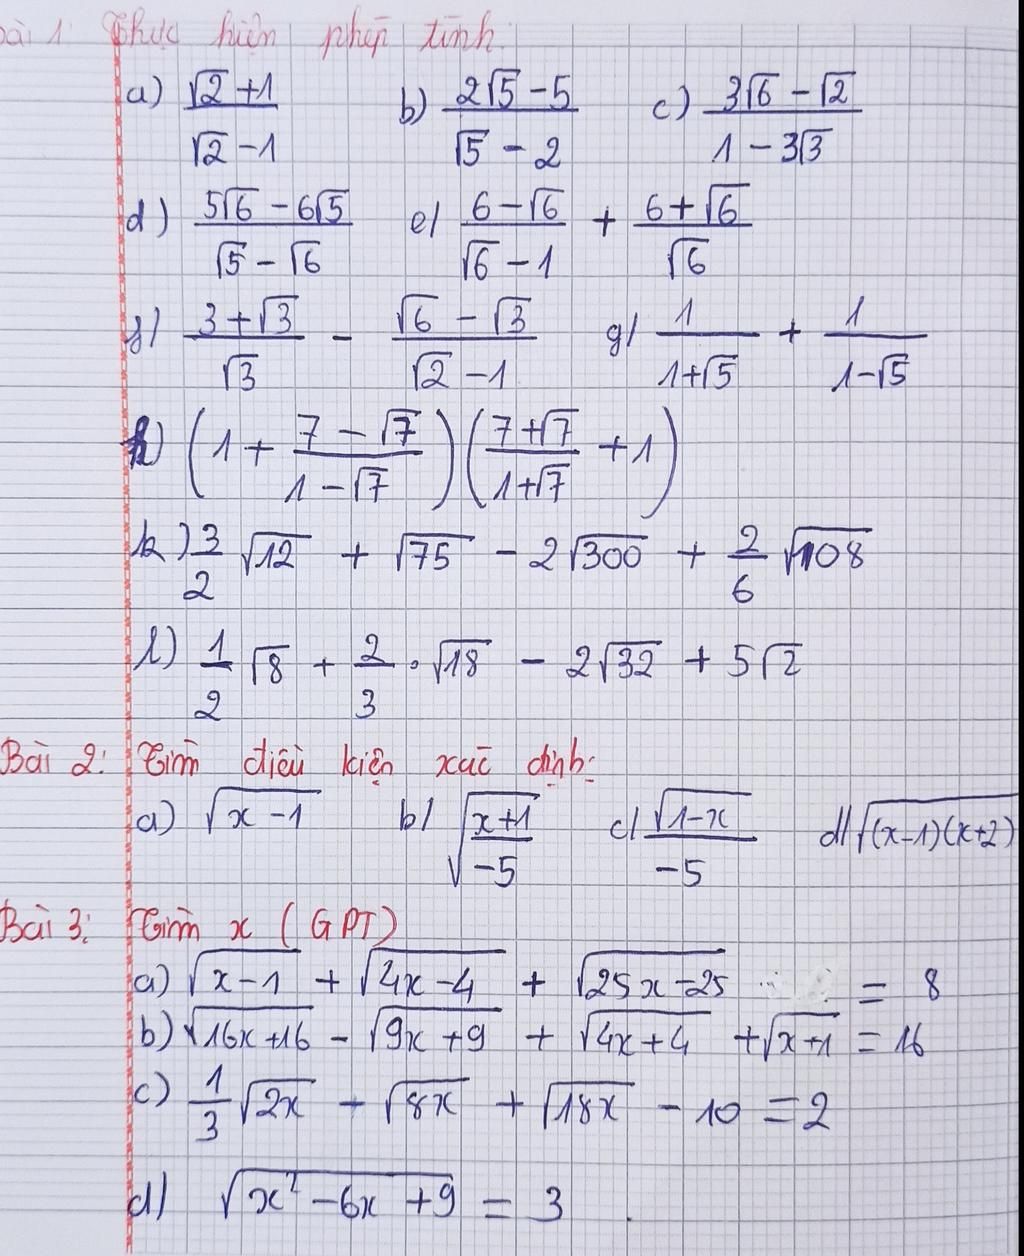 ài 1 Thực hiện phép tính:
a) (√2 + 1)/(√2 - 1) b) (2√5 - 5)/(√5 - 2) c) (3√6 - √2)/(1 - 3√3)
d) (5√6 - 6√5)/(√5 - √6) e) (6 - √6)/(√6 - 1) + (6 + √6)/√6
f) (3 + √3)/√3 - (√6 - √3)/(√2 - 1) g) 1/(1 + √5) + 1/(1 - √5)
h) (1 + (7 - √7)/(1 - √7))((7 + √7)/(1 + √7) + 1)
k) 3/2 √12 + √75 - 2√300 + 2/6 √108
l) 1/2 √8 + 2/3 . √18 - 2√32 + 5√2
Bài 2: Tìm điều kiện xác định:
a) √(x - 1) b) √((x + 1)/(-5)) c) √(1 - x)/(-5) d) √((x - 1)(x + 2))
Bài 3: Tìm x (GPT)
a) √(x - 1) + √(4x - 4) + √(25x - 25) = 8
b) √(16x + 16) - √(9x + 9) + √(4x + 4) + √(x + 1) = 16
c) 1/3 √(2x) - √(8x) + √(18x) - 10 = 2
d) √(x² - 6x + 9) = 3